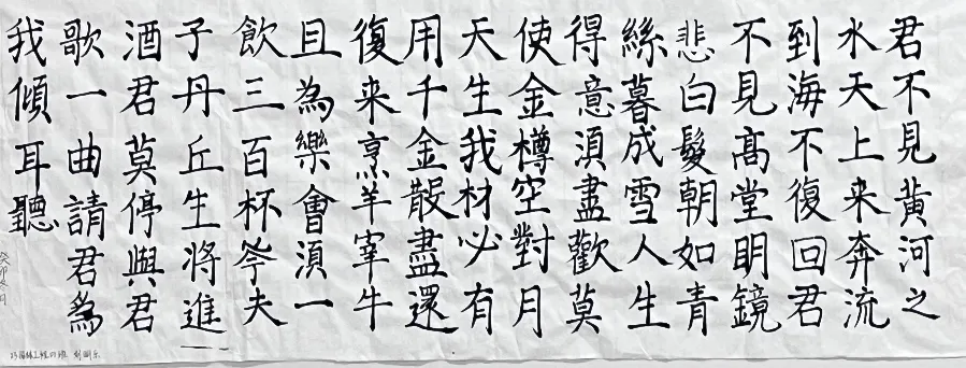 君不見黃河之
水天上来奔流
到海不復回君
不見髙堂明鏡
悲白髮朝如青
絲暮成雪人生
得意湏盡歡莫
使金樽空對月
天生我材必有
用千金散盡還
復来烹羊宰牛
且為樂會湏一
飲三百杯岑夫
子丹丘生将進
酒君莫停與君
歌一曲請君為
我傾耳聽
癸卯冬月